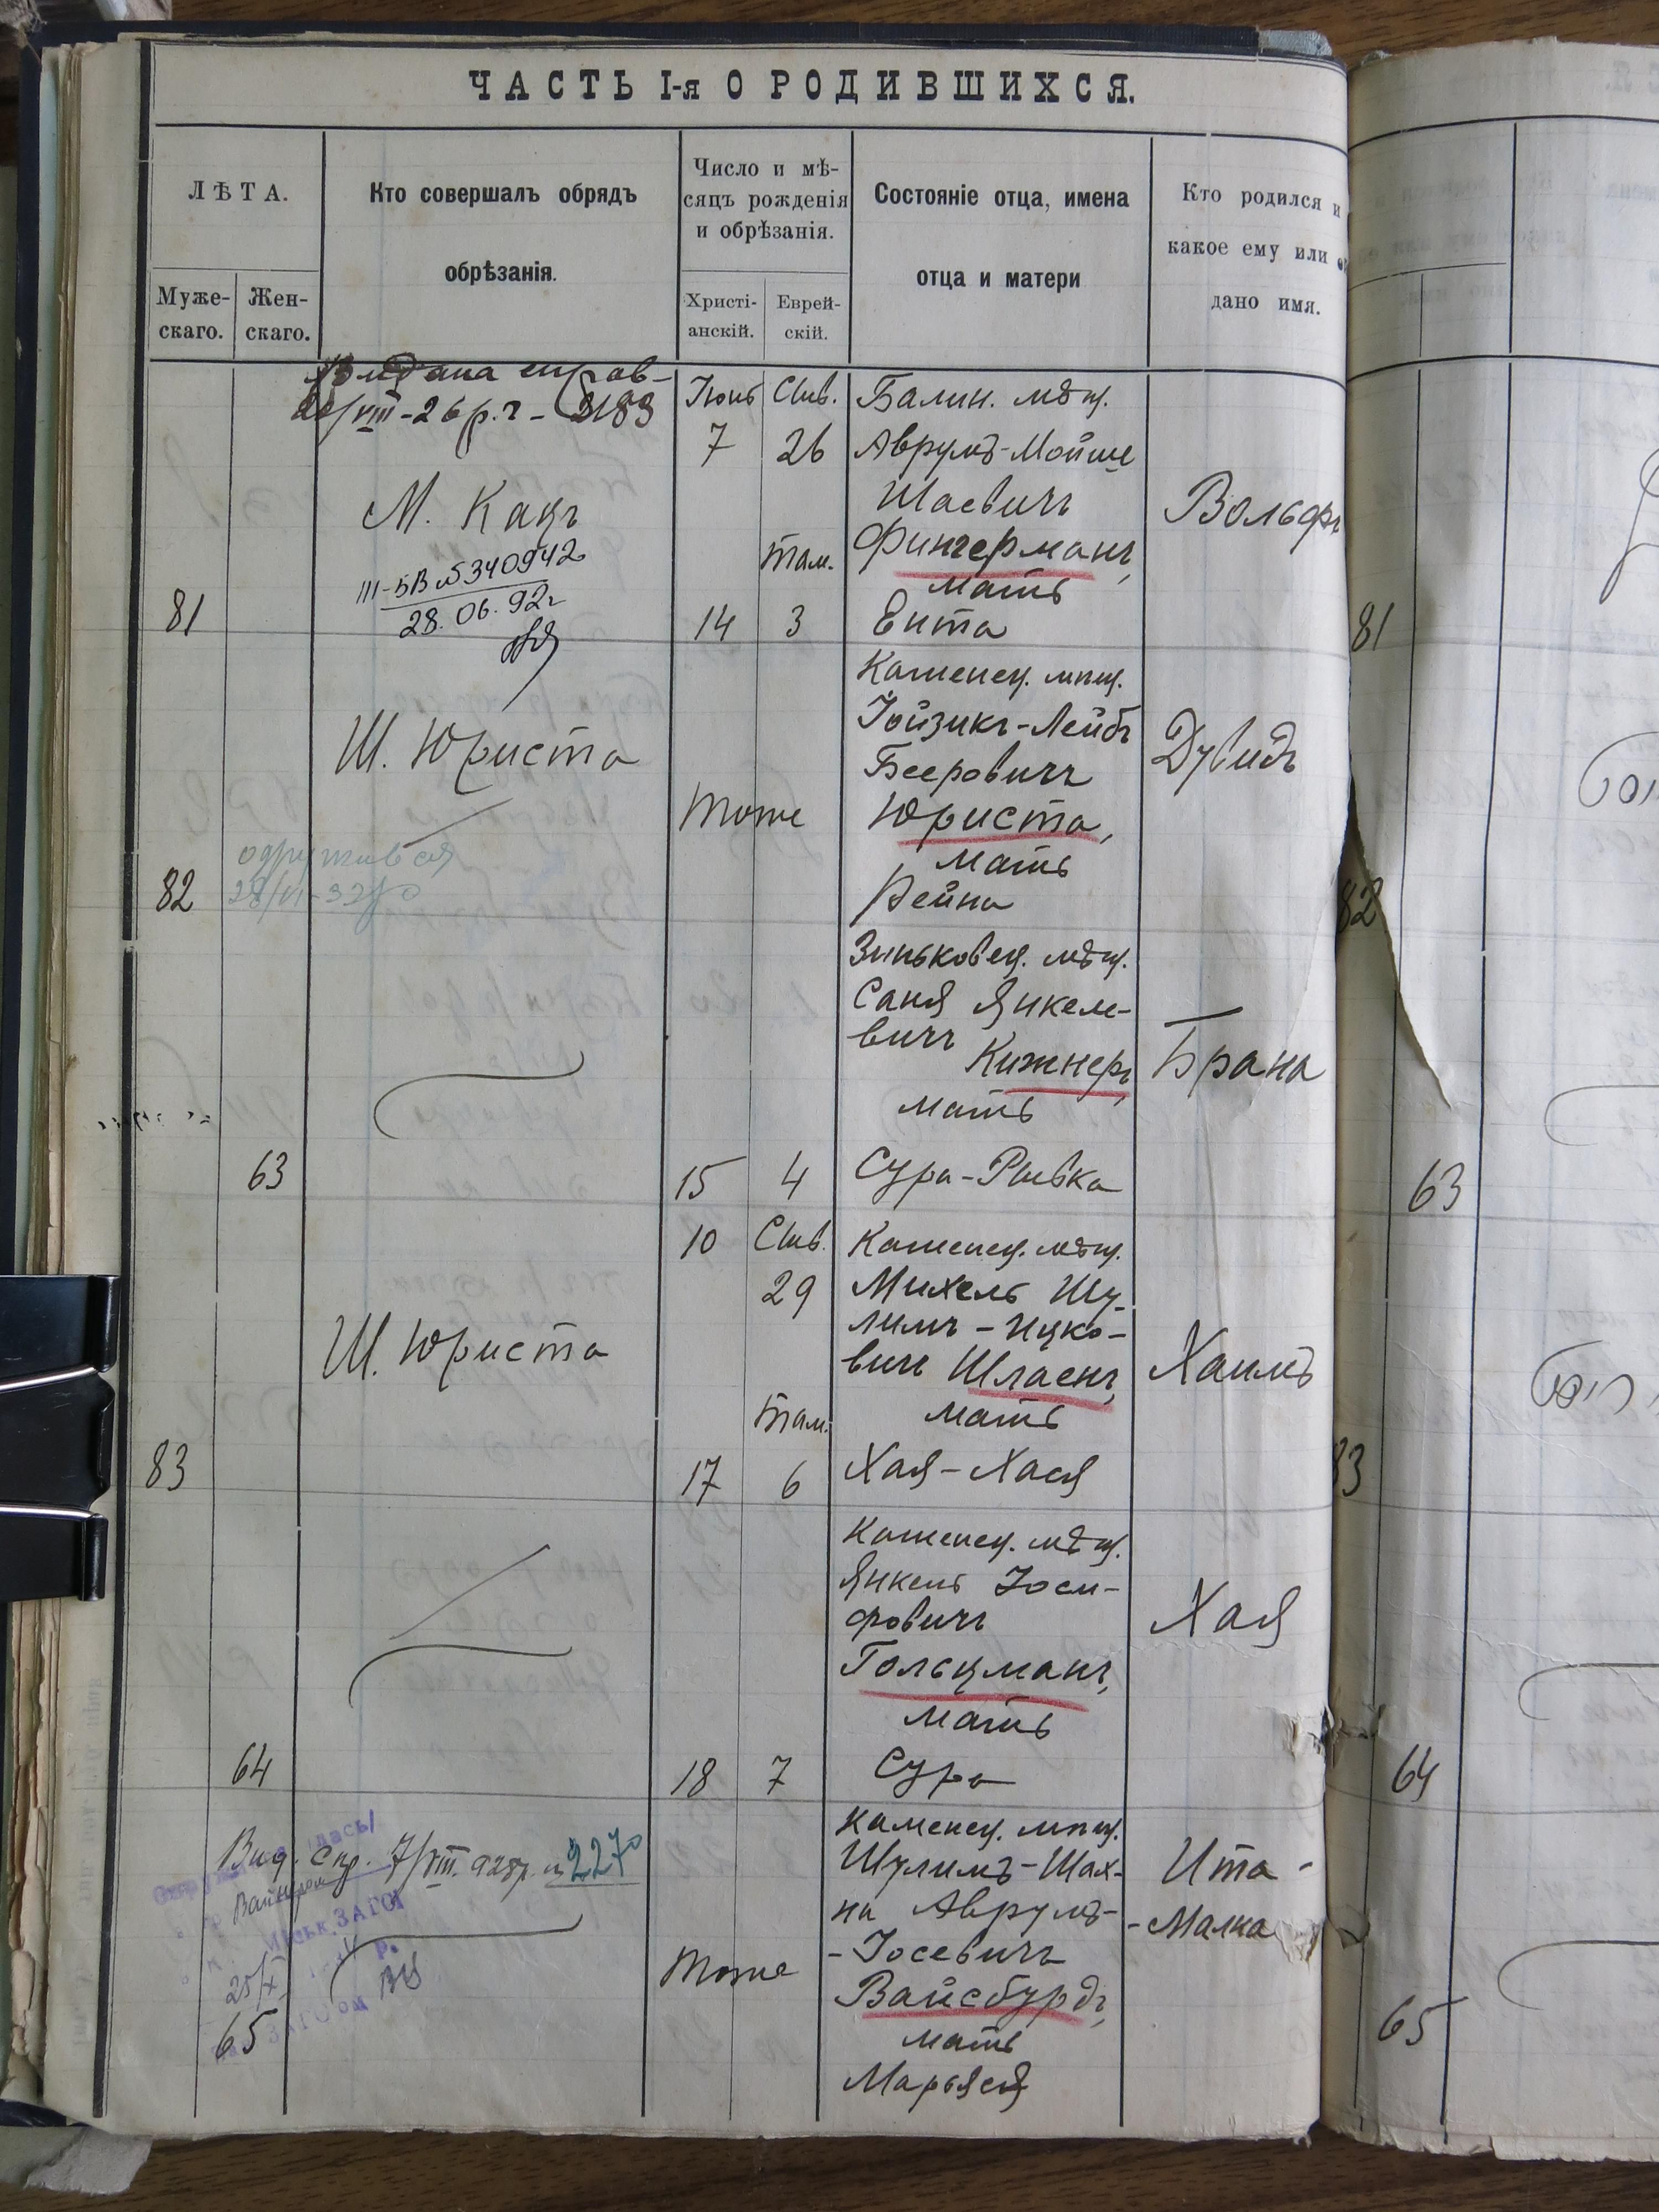 ЧАСТЬ I-я О РОДИВШИХСЯ.
ЛѢТА.
Муже-
скаго.
Жен-
скаго.
Кто совершалъ обрядъ
обрѣзанія.
Число и мѣ-
сяцъ рожденія
и обрѣзанія.
Христі-
анскій.
Еврей-
скій.
Состояніе отца, имена
отца и матери
Кто родился и
какое ему или
дано имя.
Видана справ-
/VIII-26р. 3183
М. Кацъ
III-БВ №340942
28.06.92г
81
Іюнь Сив.
7 26
Там.
14 3
Балин. мѣщ.
Аврумъ-Мойше
Шаевичъ
Фингерманъ,
мать
Ента
Вольфъ
81
82
одружився
28/VI-32р
Ш. Юриста
Тоже
Каменец. мѣщ.
Іойзикъ-Лейбъ
Бееровичъ
Юриста,
мать
Рейна
Дувидъ
82
63
15 4
Зиньковец. мѣщ.
Саня Янкеле-
вичъ
Кижнеръ,
мать
Сура-Ривка
Брана
63
83
Ш. Юриста
10 Сив.
29
Там.
17 6
Каменец. мѣщ.
Михель Шу-
лимъ-Ицко-
вичъ Шлаенъ,
мать
Хая-Хася
Хаимъ
83
64
18 7
Каменец. мѣщ.
Янкель Іоси-
фовичъ
Гольцманъ,
мать
Сура
Хая
64
Вид. спр. 7/VIII. 928р. № 2270
МІськ ЗАГОІ
25/X
65
Тоже
Каменец. мѣщ.
Шулимъ-Шах-
на Аврумъ-
-Іосевичъ
Вайсбурдъ,
мать
Марьяся
Ита-
-Малка
65